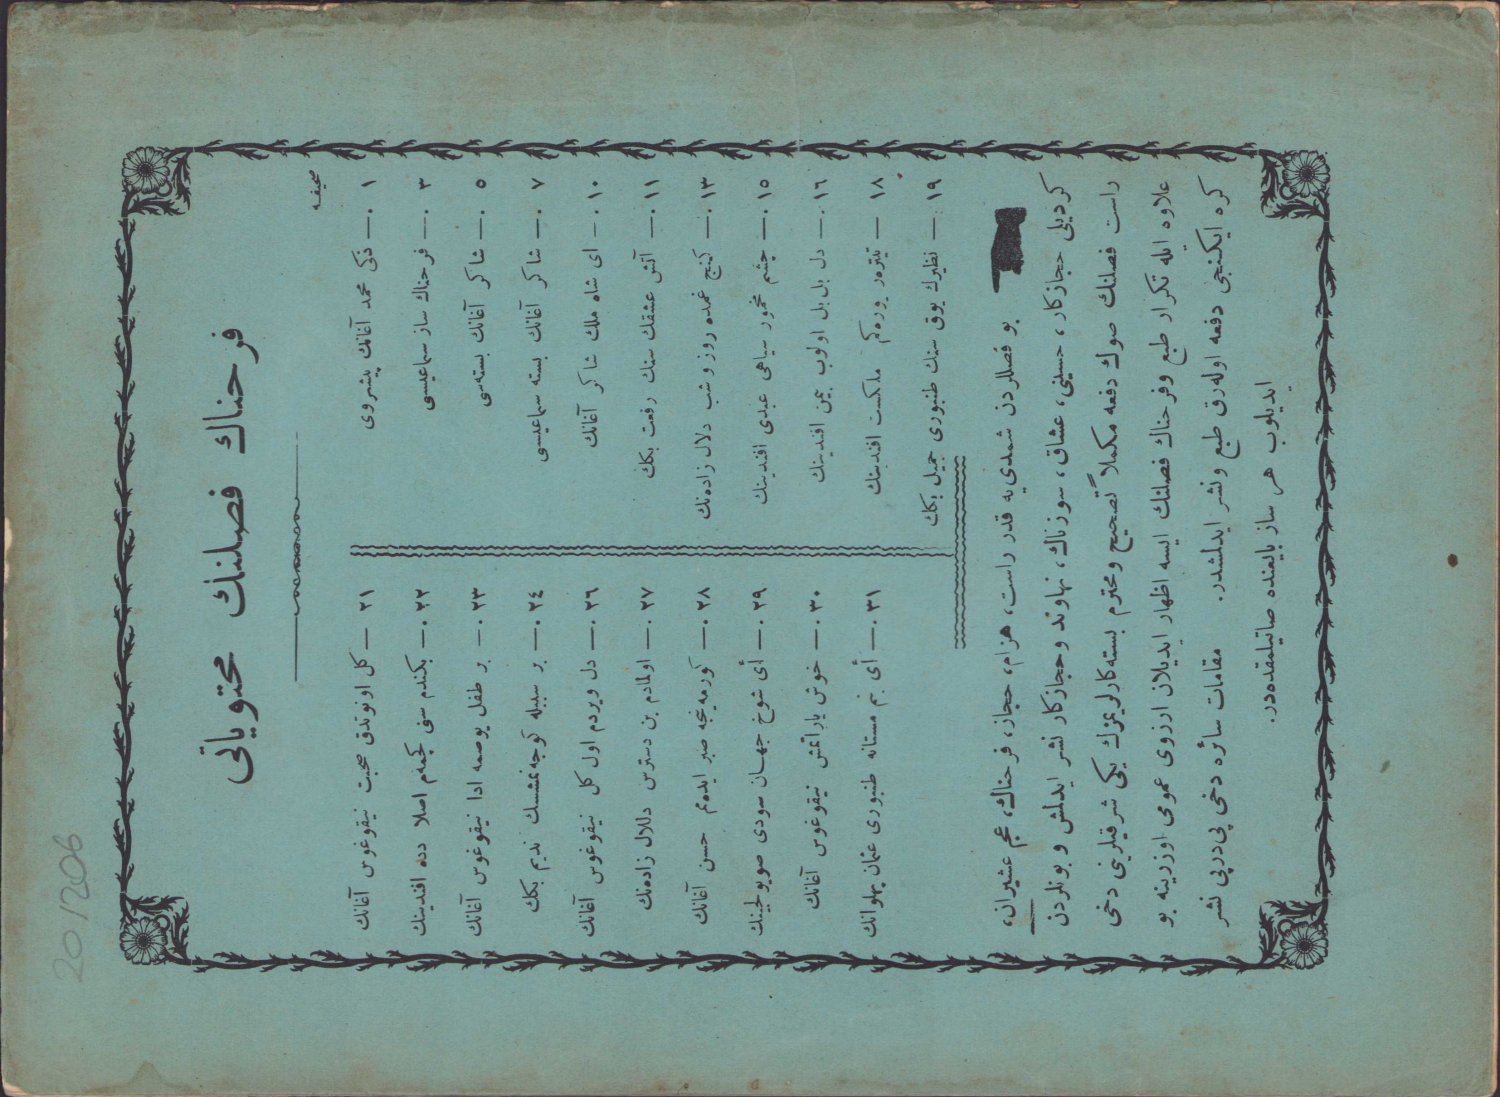 فرحناك فصلنك محتوياتى
صحيفه
١ —. ذكى محمد آغانك پيشروى
٣ —. فرحناك ساز سماعيسى
٥ —. شاكر آغانك بسته‌سى
٧ —. شاكر آغانك بسته سماعيسى
١٠ — اى شاه ملك شاكر آغانك
١١ —. آتش عشقك سنك رفعت بكك
١٣ —. كنج غمده روز و شب دلال زاده‌نك
١٥ —. چشم مخمور سياهى عبدى افندينك
١٦ —. دل بل بل اولوب افندينك
١٨ — تيتره‌ر يوره‌كم مدكست افندينك
١٩ — نظيرك يوق سنك طنبورى جميل بكك
٢١ — كل او نوندق صحبت نيقوغوس آغانك
٢٢ —. بكندم سنى كچمم اصلا دده افندينك
٢٣ — بر طفل يوصمه ادا نيقوغوس آغانك
٢٤ —. بر سببله كوجه‌نمشسك نديم بكك
٢٦ —. دل ويردم اول كل نيقوغوس آغانك
٢٧ —. اولمادم بن دسترس دللال زاده‌نك
٢٨ —. كورمه‌ينجه صبر ايده‌مم حسن آغانك
٢٩ —. اى شوخ جهان سودى صويولجينك
٣٠ —. خوش ياراتمش نيقوغوس آغانك
٣١ —. أى بنم مستانه طنبورى عثمان پهلوانك
بو فصللردن شمدى‌يه قدر راست، هزام، حجاز، فرحناك، عجم عشيران،
كرديلى حجازكار، حسينى، عشاق، سوزناك، نهاوند و حجازكار نشر ايدلمش و بونلردن
راست فصلنك صوك دفعه مكملاً تصحيح و محترم بسته‌كارلريمزك يكى شرقيلرينى دخى
علاوه ايله تكرار طبع و فرحناك فصلنك ايسه اظهار ايديلان ارزوى عمومى اوزرينه بو
كره ايكنجى دفعه اوله‌رق طبع و نشر ايدلمشدر. مقامات سائره دخى پى‌درپى نشر
ايديلوب هر ساز بايعنده صاتيلمقده‌در.
201206